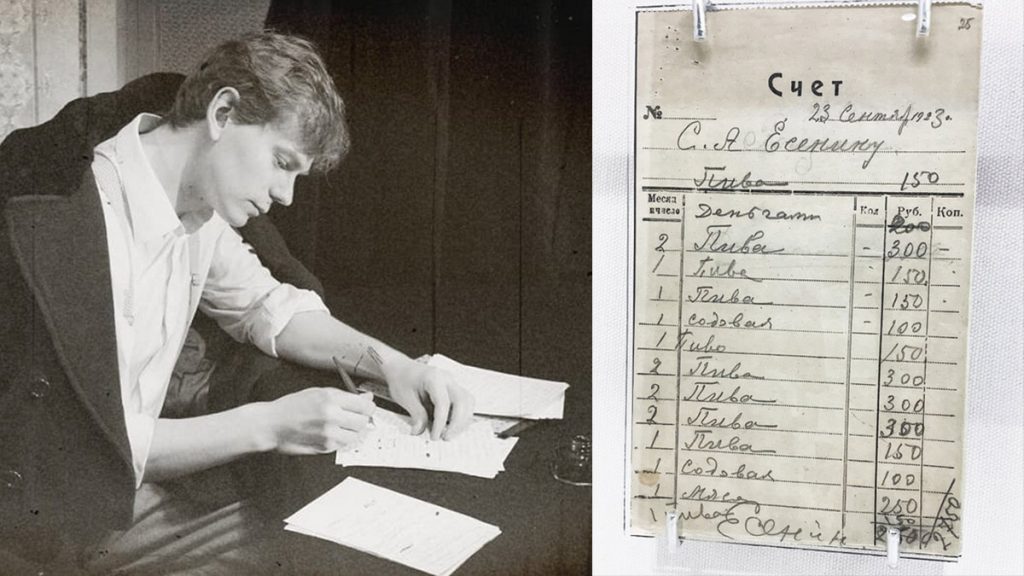 25
Счет
№ 23 Сентяб 1923г.
С. А Есенину
Пива 150
Месяц и число Кол Руб. Коп.
Деньгами 200
2 Пива - 300 -
1 Пива - 150
1 Пива - 150 -
1 содовая - 100
1 Пиво 150
2 Пива 300
2 Пива 300
2 Пива 300
1 Пива 150
1 Содовая 100
1 Мясо 250
1 пиво